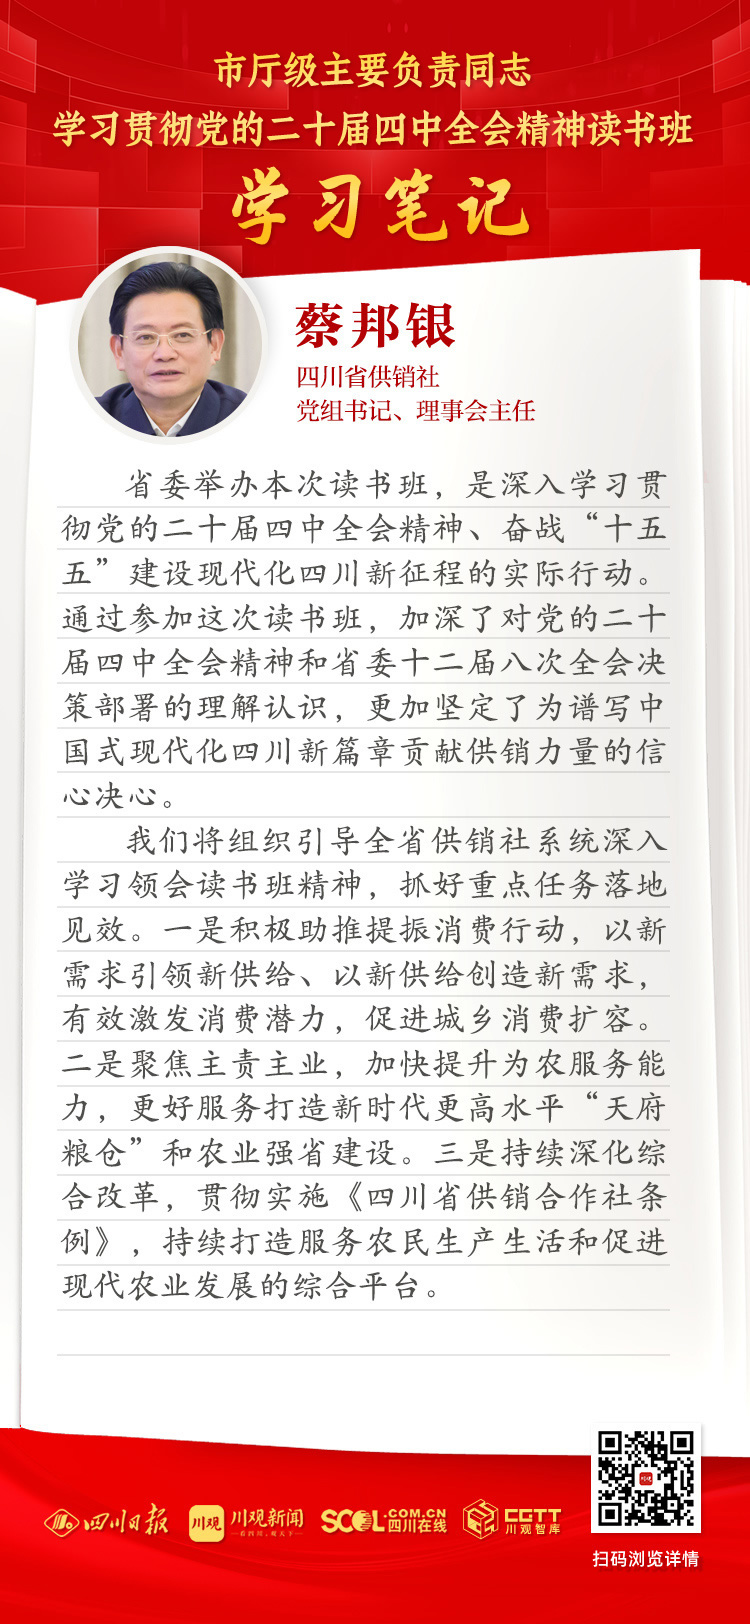 市厅级主要负责同志
学习贯彻党的二十届四中全会精神读书班
学习笔记
蔡邦银
四川省供销社
党组书记、理事会主任
省委举办本次读书班，是深入学习贯
彻党的二十届四中全会精神、奋战“十五
五”建设现代化四川新征程的实际行动。
通过参加这次读书班，加深了对党的二十
届四中全会精神和省委十二届八次全会决
策部署的理解认识，更加坚定了为谱写中
国式现代化四川新篇章贡献供销力量的信
心决心。
我们将组织引导全省供销社系统深入
学习领会读书班精神，抓好重点任务落地
见效。一是积极助推提振消费行动，以新
需求引领新供给、以新供给创造新需求，
有效激发消费潜力，促进城乡消费扩容。
二是聚焦主责主业，加快提升为农服务能
力，更好服务打造新时代更高水平“天府
粮仓”和农业强省建设。三是持续深化综
合改革，贯彻实施《四川省供销合作社条
例》，持续打造服务农民生产生活和促进
现代农业发展的综合平台。
四川日报
川观
川观新闻
—看四川，观天下—
SCOL.COM.CN
四川在线
CGTT
川观智库
川观
扫码浏览详情